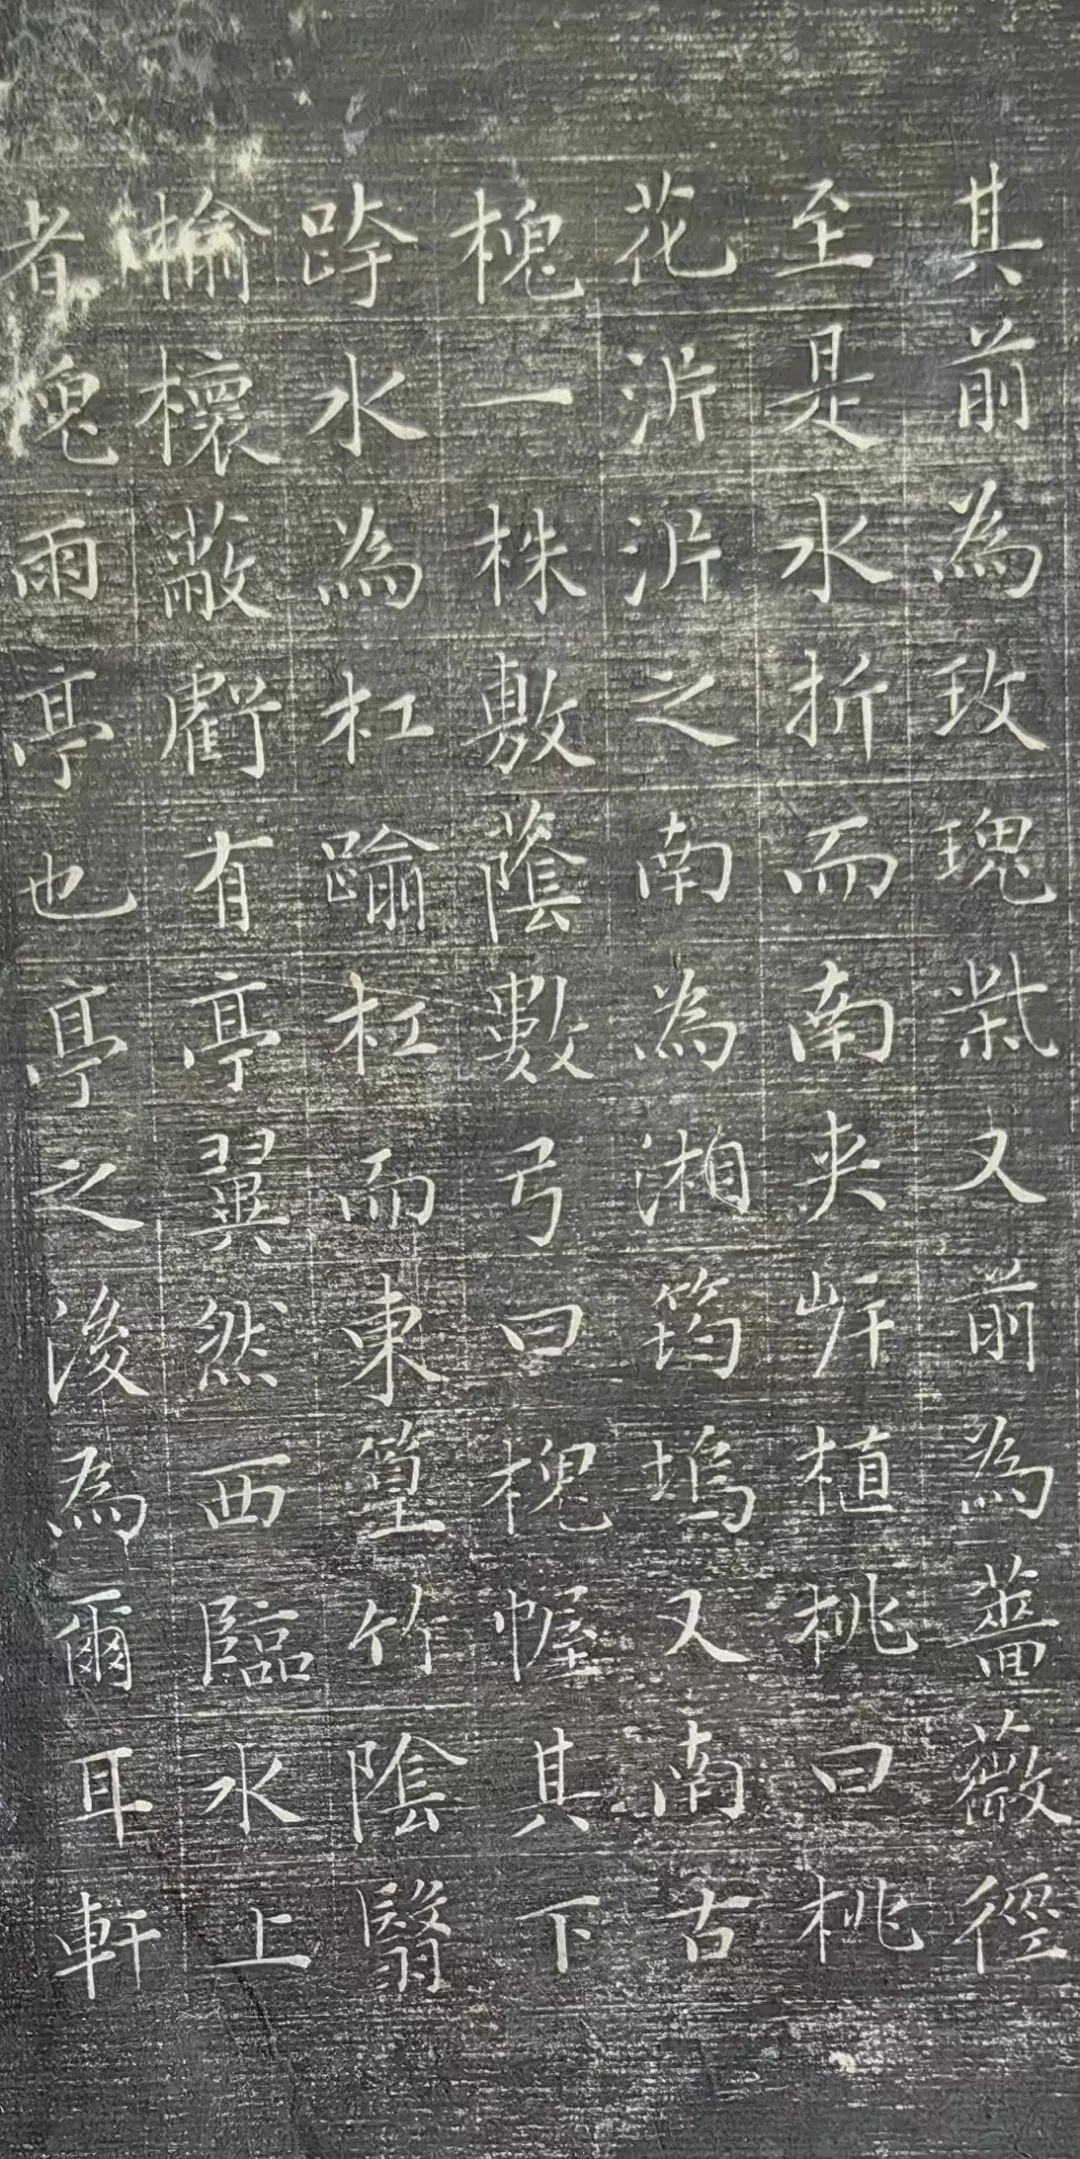 其前為玫瑰柴又前為薔薇徑
至是水折而南夾岸植桃曰桃
花沜沜之南為湘筠塢又南古
槐一株敷蔭數弓曰槐幄其下
跨水為杠踰杠而東篁竹陰翳
榆櫰蔽虧有亭翼然西臨水上
者槐雨亭也亭之後為爾耳軒